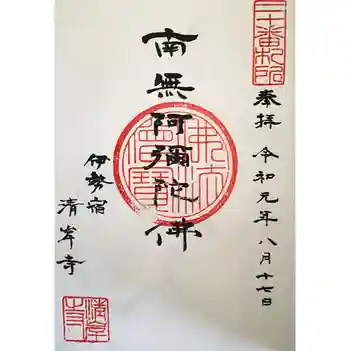 三十番札所
奉拝 令和元年八月十七日
南無阿彌陀佛
佛法僧寶
伊勢宿
清岸寺